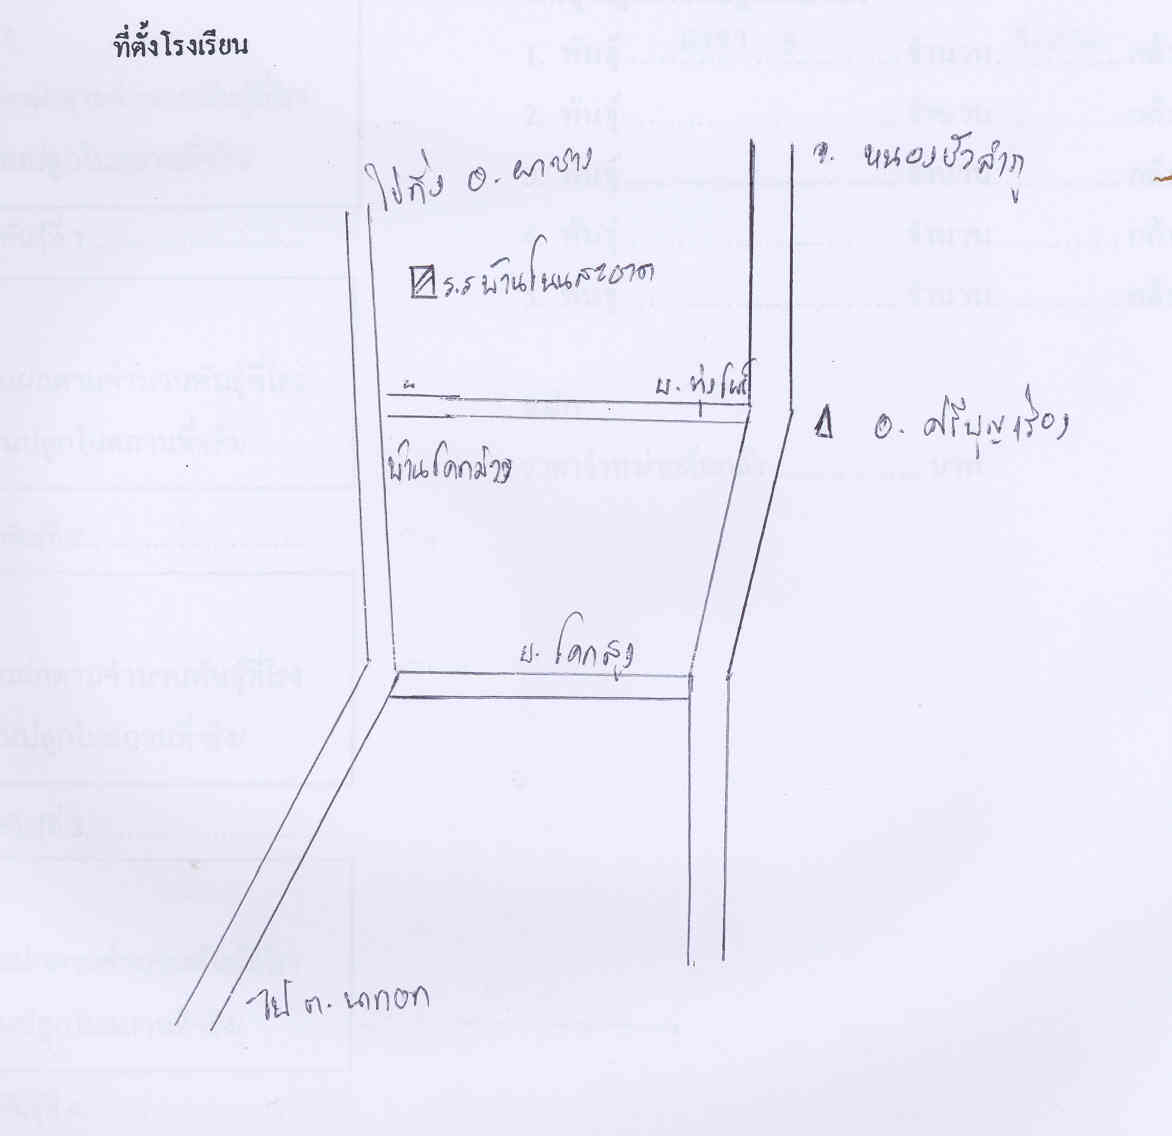 ที่ตั้งโรงเรียน
จ. หนองบัวลำภู
ไปกิ่ง อ.
ร.ร บ้านโนนสะอาด
บ. ทุ่งโพธิ์
อ. ศรีบุญเรือง
บ้านโคกม่วง
บ. โคกสูง
ไป ต. นากอก